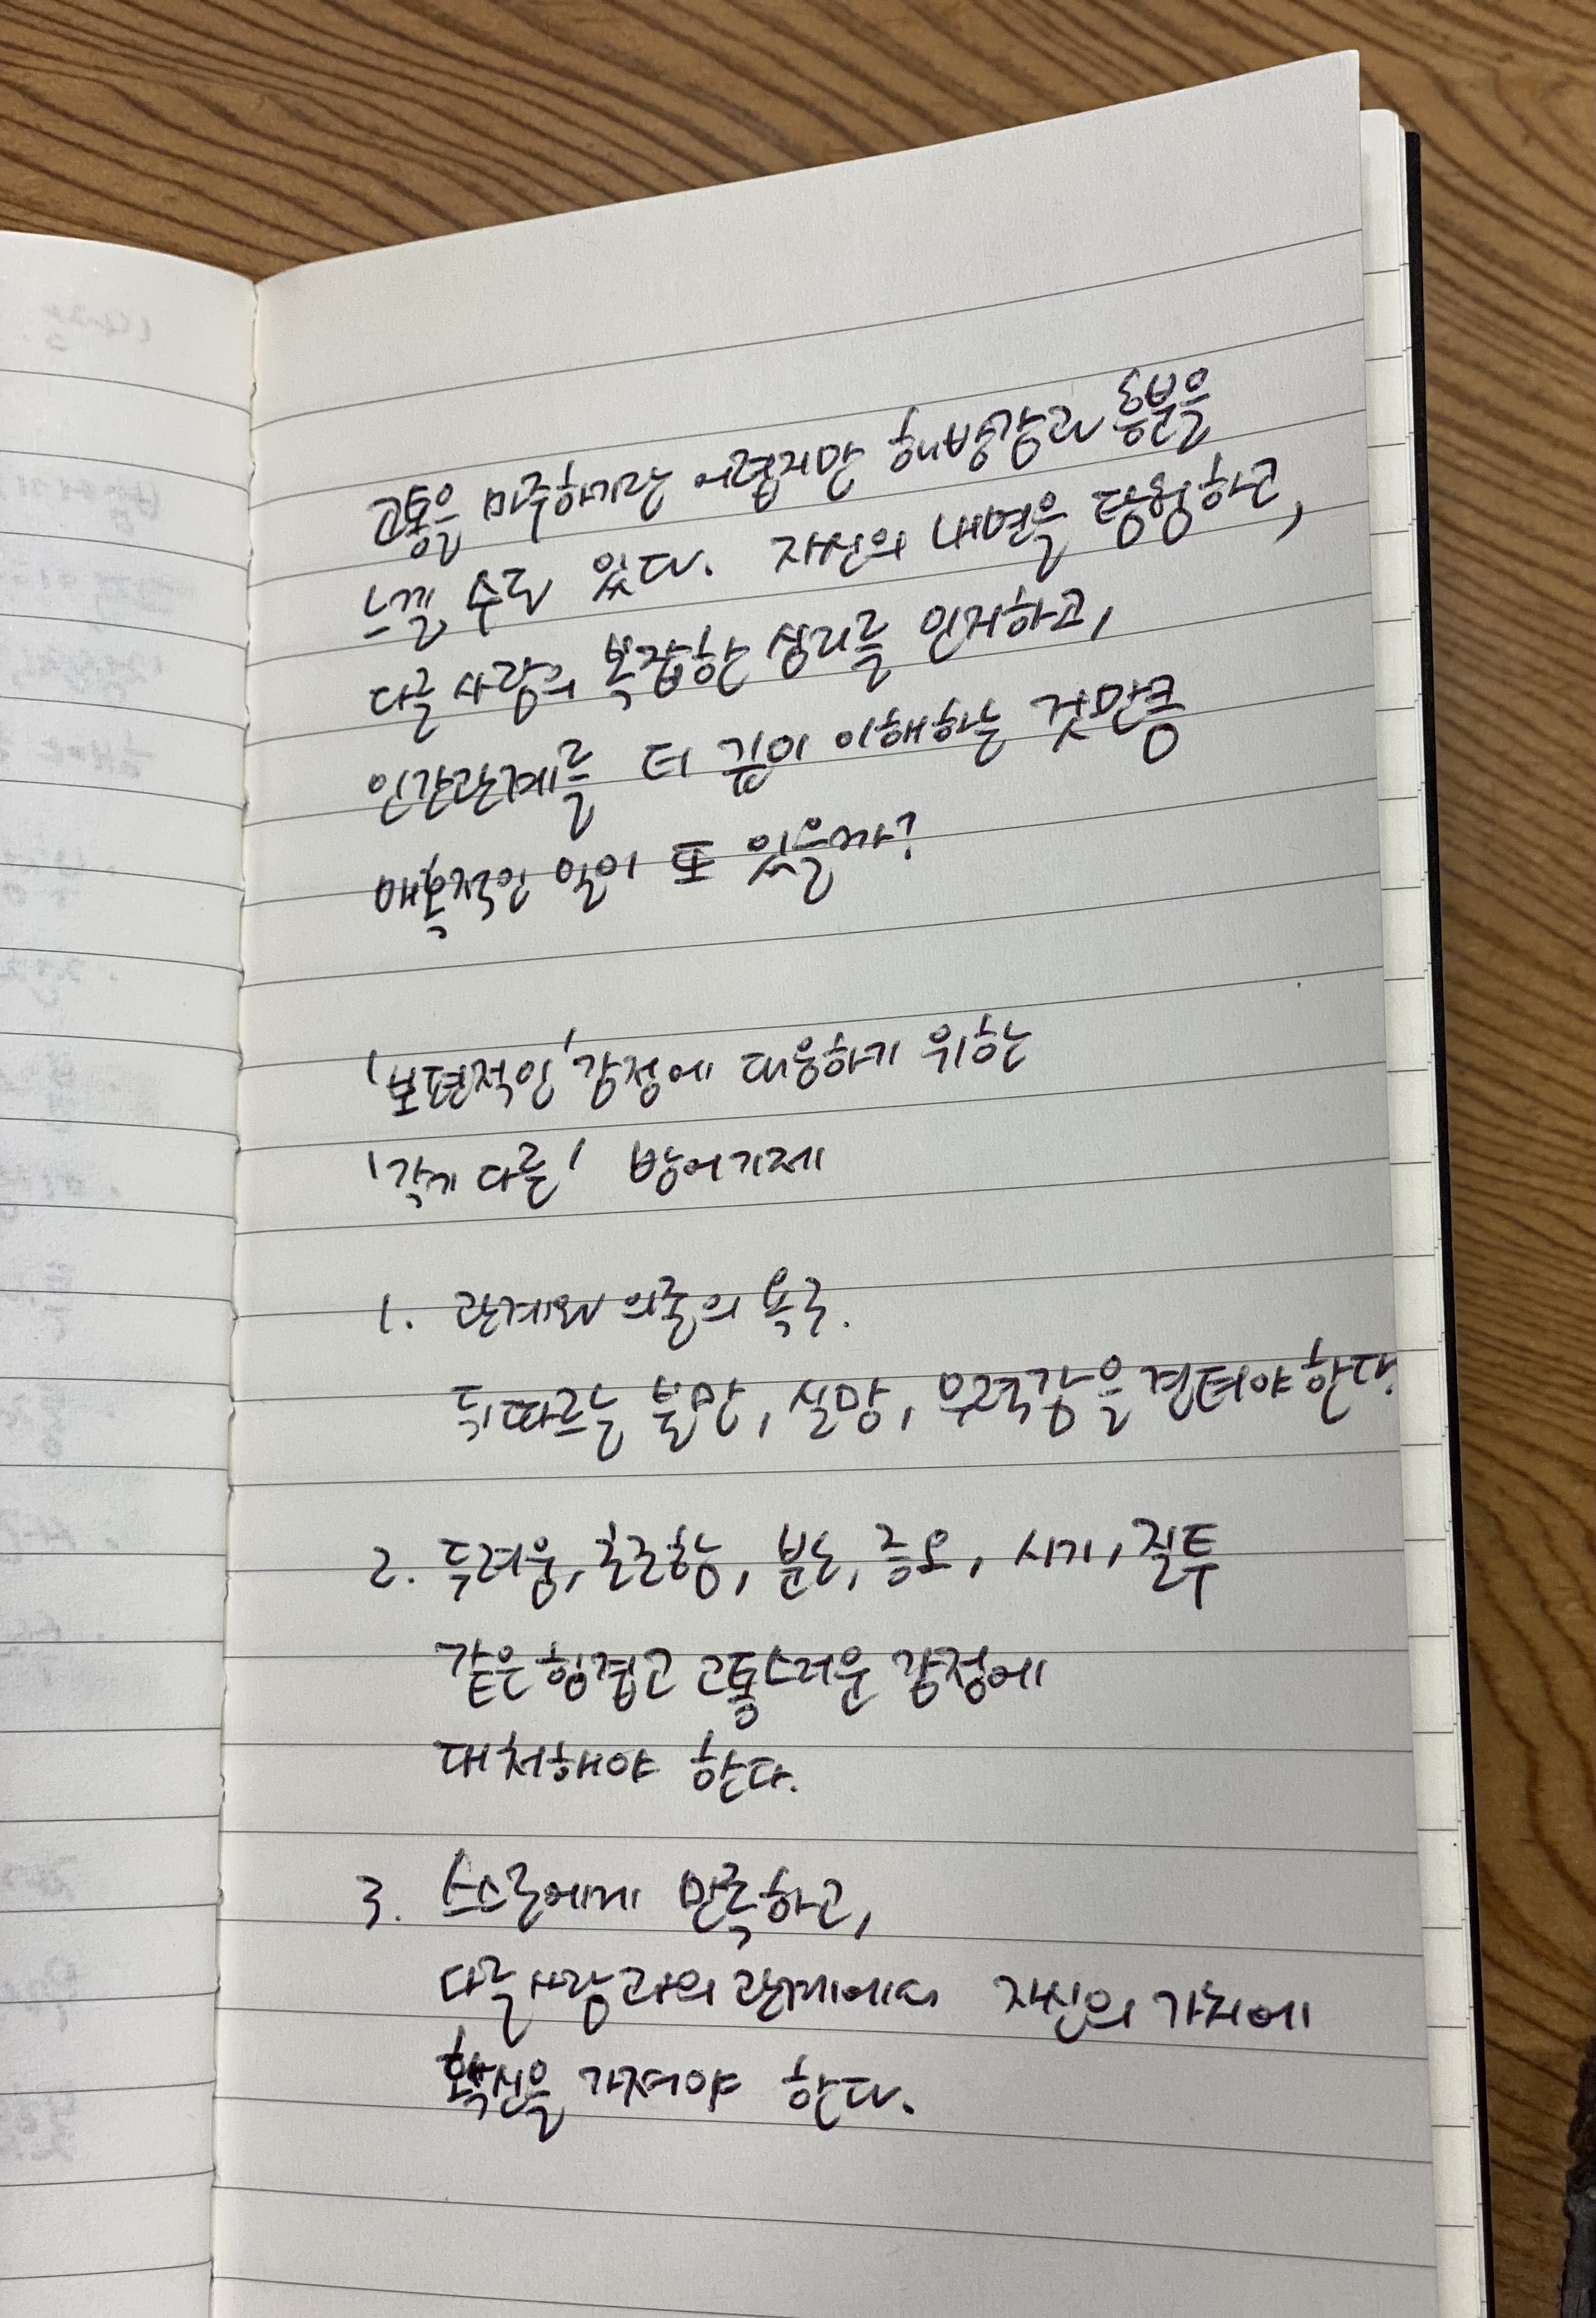 고통을 마주하기란 어렵지만 해방감과 흥분을
느낄 수도 있다. 자신의 내면을 탐험하고,
다른 사람의 복잡한 심리를 인지하고,
인간관계를 더 깊이 이해하는 것만큼
매혹적인 일이 또 있을까?
'보편적인' 감정에 대응하기 위한
'각기 다른' 방어기제
1. 관계와 의존의 욕구.
뒤따르는 불만, 실망, 무력감을 견뎌야 한다.
2. 두려움, 초조함, 분노, 증오, 시기, 질투
같은 힘겹고 고통스러운 감정에
대처해야 한다.
3. 스스로에게 만족하고,
다른 사람과의 관계에서 자신의 가치에
확신을 가져야 한다.